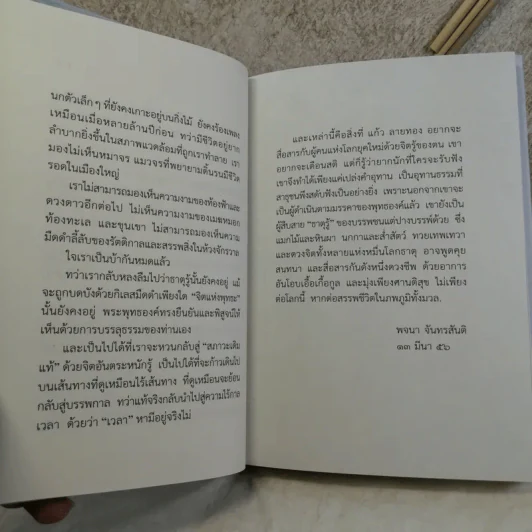 นกตัวเล็ก ๆ ที่ยังคงเกาะอยู่บนกิ่งไม้ ยังคงร้องเพลง
เหมือนเมื่อหลายล้านปีก่อน ทว่ามีชีวิตอยู่ยาก
ลำบากยิ่งขึ้นในสภาพแวดล้อมที่ถูกเราทำลาย เรา
มองไม่เห็นหมาจร แมวจรที่พยายามดิ้นรนมีชีวิต
รอดในเมืองใหญ่
เราไม่สามารถมองเห็นความงามของท้องฟ้าและ
ดวงดาวอีกต่อไป ไม่เห็นความงามของเมฆหมอก
ท้องทะเล และขุนเขา เราไม่สามารถมองเห็นความ
มืดดำลี้ลับของรัตติกาลและสรรพสิ่งในห้วงจักรวาล
ใจเราเป็นบ้ากันหมดแล้ว
ทว่าเรากลับหลงลืมไปว่าธาตุรู้นั้นยังคงอยู่ แม้
จะถูกบดบังด้วยกิเลสมืดดำเพียงใด “จิตแห่งพุทธะ”
นั้นยังคงอยู่ พระพุทธองค์ทรงยืนยันและพิสูจน์ให้
เห็นด้วยการบรรลุธรรมของท่านเอง
และเป็นไปได้ที่เราจะหวนกลับสู่ “สภาวะเดิม
แท้” ด้วยจิตอันตระหนักรู้ เป็นไปได้ที่จะก้าวเดินไป
บนเส้นทางที่ดูเหมือนไร้เส้นทาง ที่ดูเหมือนจะย้อน
กลับสู่บรรพกาล ทว่าแท้จริงกลับนำไปสู่ความไร้กาล
เวลา ด้วยว่า “เวลา” หามีอยู่จริงไม่
และเหล่านี้คือสิ่งที่ แก้ว ลายทอง อยากจะ
สื่อสารกับผู้คนแห่งโลกยุคใหม่ด้วยจิตรู้ของตน เขา
อยากจะเตือนสติ แต่ก็รู้ว่ายากนักที่ใครจะรับฟัง
เขาจึงทำได้เพียงแค่เปล่งคำอุทาน เป็นอุทานธรรมที่
สาธุชนพึงสดับฟังเป็นอย่างยิ่ง เพราะนอกจากเขาจะ
เป็นผู้ดำเนินตามมรรคาของพุทธองค์แล้ว เขายังเป็น
ผู้สืบสาย “ธาตุรู้” ของบรรพชนแต่ปางบรรพ์ด้วย ซึ่ง
แมกไม้และหินผา นกกาและส่ำสัตว์ ทวยเทพเทวา
และดวงจิตทั้งหลายแห่งหมื่นโลกธาตุ อาจพูดคุย
สนทนา และสื่อสารกันดังหนึ่งดวงชีพ ด้วยอาการ
อันโอบเอื้อเกื้อกูล และมุ่งแพร่ศานติสุข ไม่เพียง
ต่อโลกนี้ หากต่อสรรพชีวิตในภพภูมิทั้งมวล.
พจนา จันทรสันติ
๑๓ มีนา ๕๖